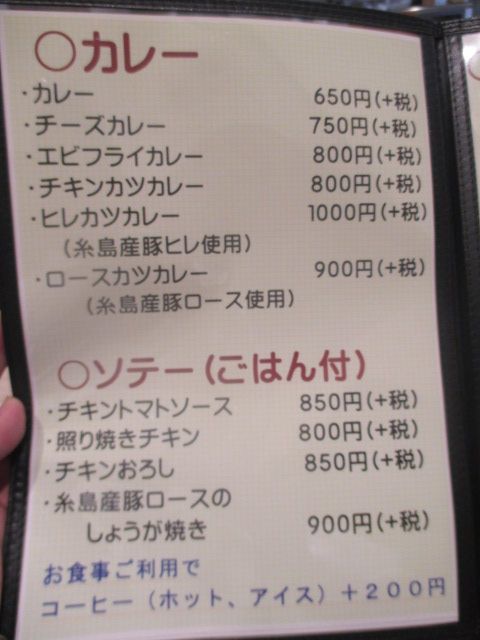 ○カレー
・カレー 650円(+税)
・チーズカレー 750円(+税)
・エビフライカレー 800円(+税)
・チキンカツカレー 800円(+税)
・ヒレカツカレー 1000円(+税)
(糸島産豚ヒレ使用)
・ロースカツカレー 900円(+税)
(糸島産豚ロース使用)
○ソテー(ごはん付)
・チキントマトソース 850円(+税)
・照り焼きチキン 800円(+税)
・チキンおろし 850円(+税)
・糸島産豚ロースの
しょうが焼き 900円(+税)
お食事ご利用で
コーヒー(ホット、アイス)+200円